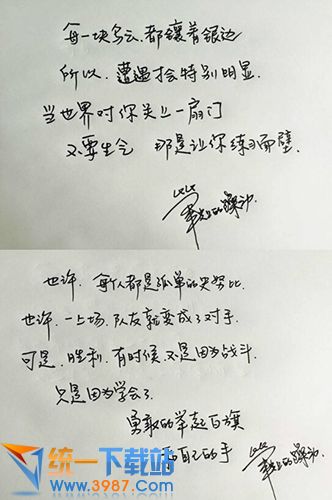 每一块乌云.都镶着银边
所以.遭遇才会特别明显.
当世界对你关上一扇门
不要生气 那是让你练习面壁.
掌上的躁动
也许.每个人都是孤单的史努比.
也许.一上场.队友就变成了对手.
可是.胜利.有时候.不是因为战斗.
只是因为学会了
勇敢的举起白旗
和自己的手
掌上的躁动
统一下载站
www.3987.com